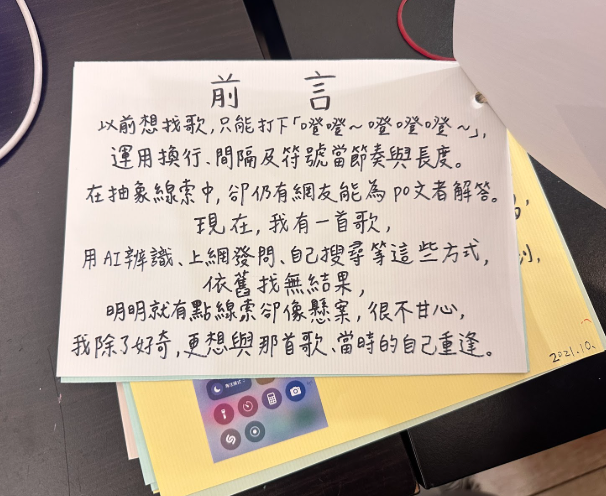 前 言
以前想找歌,只能打下「噔噔~噔噔噔~」,
運用換行、間隔及符號當節奏與長度。
在抽象線索中,卻仍有網友能為po文者解答。
現在,我有一首歌,
用AI辨識、上網發問、自己搜尋等這些方式,
依舊找無結果,
明明就有點線索卻像懸案,很不甘心,
我除了好奇,更想與那首歌、當時的自己重逢。
2021.10.